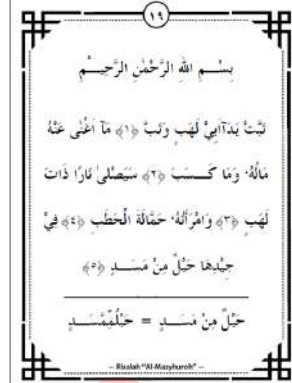 ١٩
بِسْـــمِ اللهِ الرَّحْمٰنِ الرَّحِيْـــمِ
تَبَّتْ يَدَآاَبِيْ لَهَبٍ وَتَبَّ ﴿١﴾ مَآ اَغْنٰى عَنْهُ
مَالُهٗ وَمَا كَـــسَبَ ﴿٢﴾ سَيَصْلٰى نَارًا ذَاتَ
لَهَبٍ ﴿٣﴾ وَامْرَأَتُهٗ حَمَّالَةَ الْحَطَبِ ﴿٤﴾ فِيْ
جِيْدِهَا حَبْلٌ مِنْ مَسَـــدٍ ﴿٥﴾
حَبْلٌ مِنْ مَســـدٍ = حَبْلُمِّمَّسَـــدٍ
– Risalah "Al-Masyhuroh" –